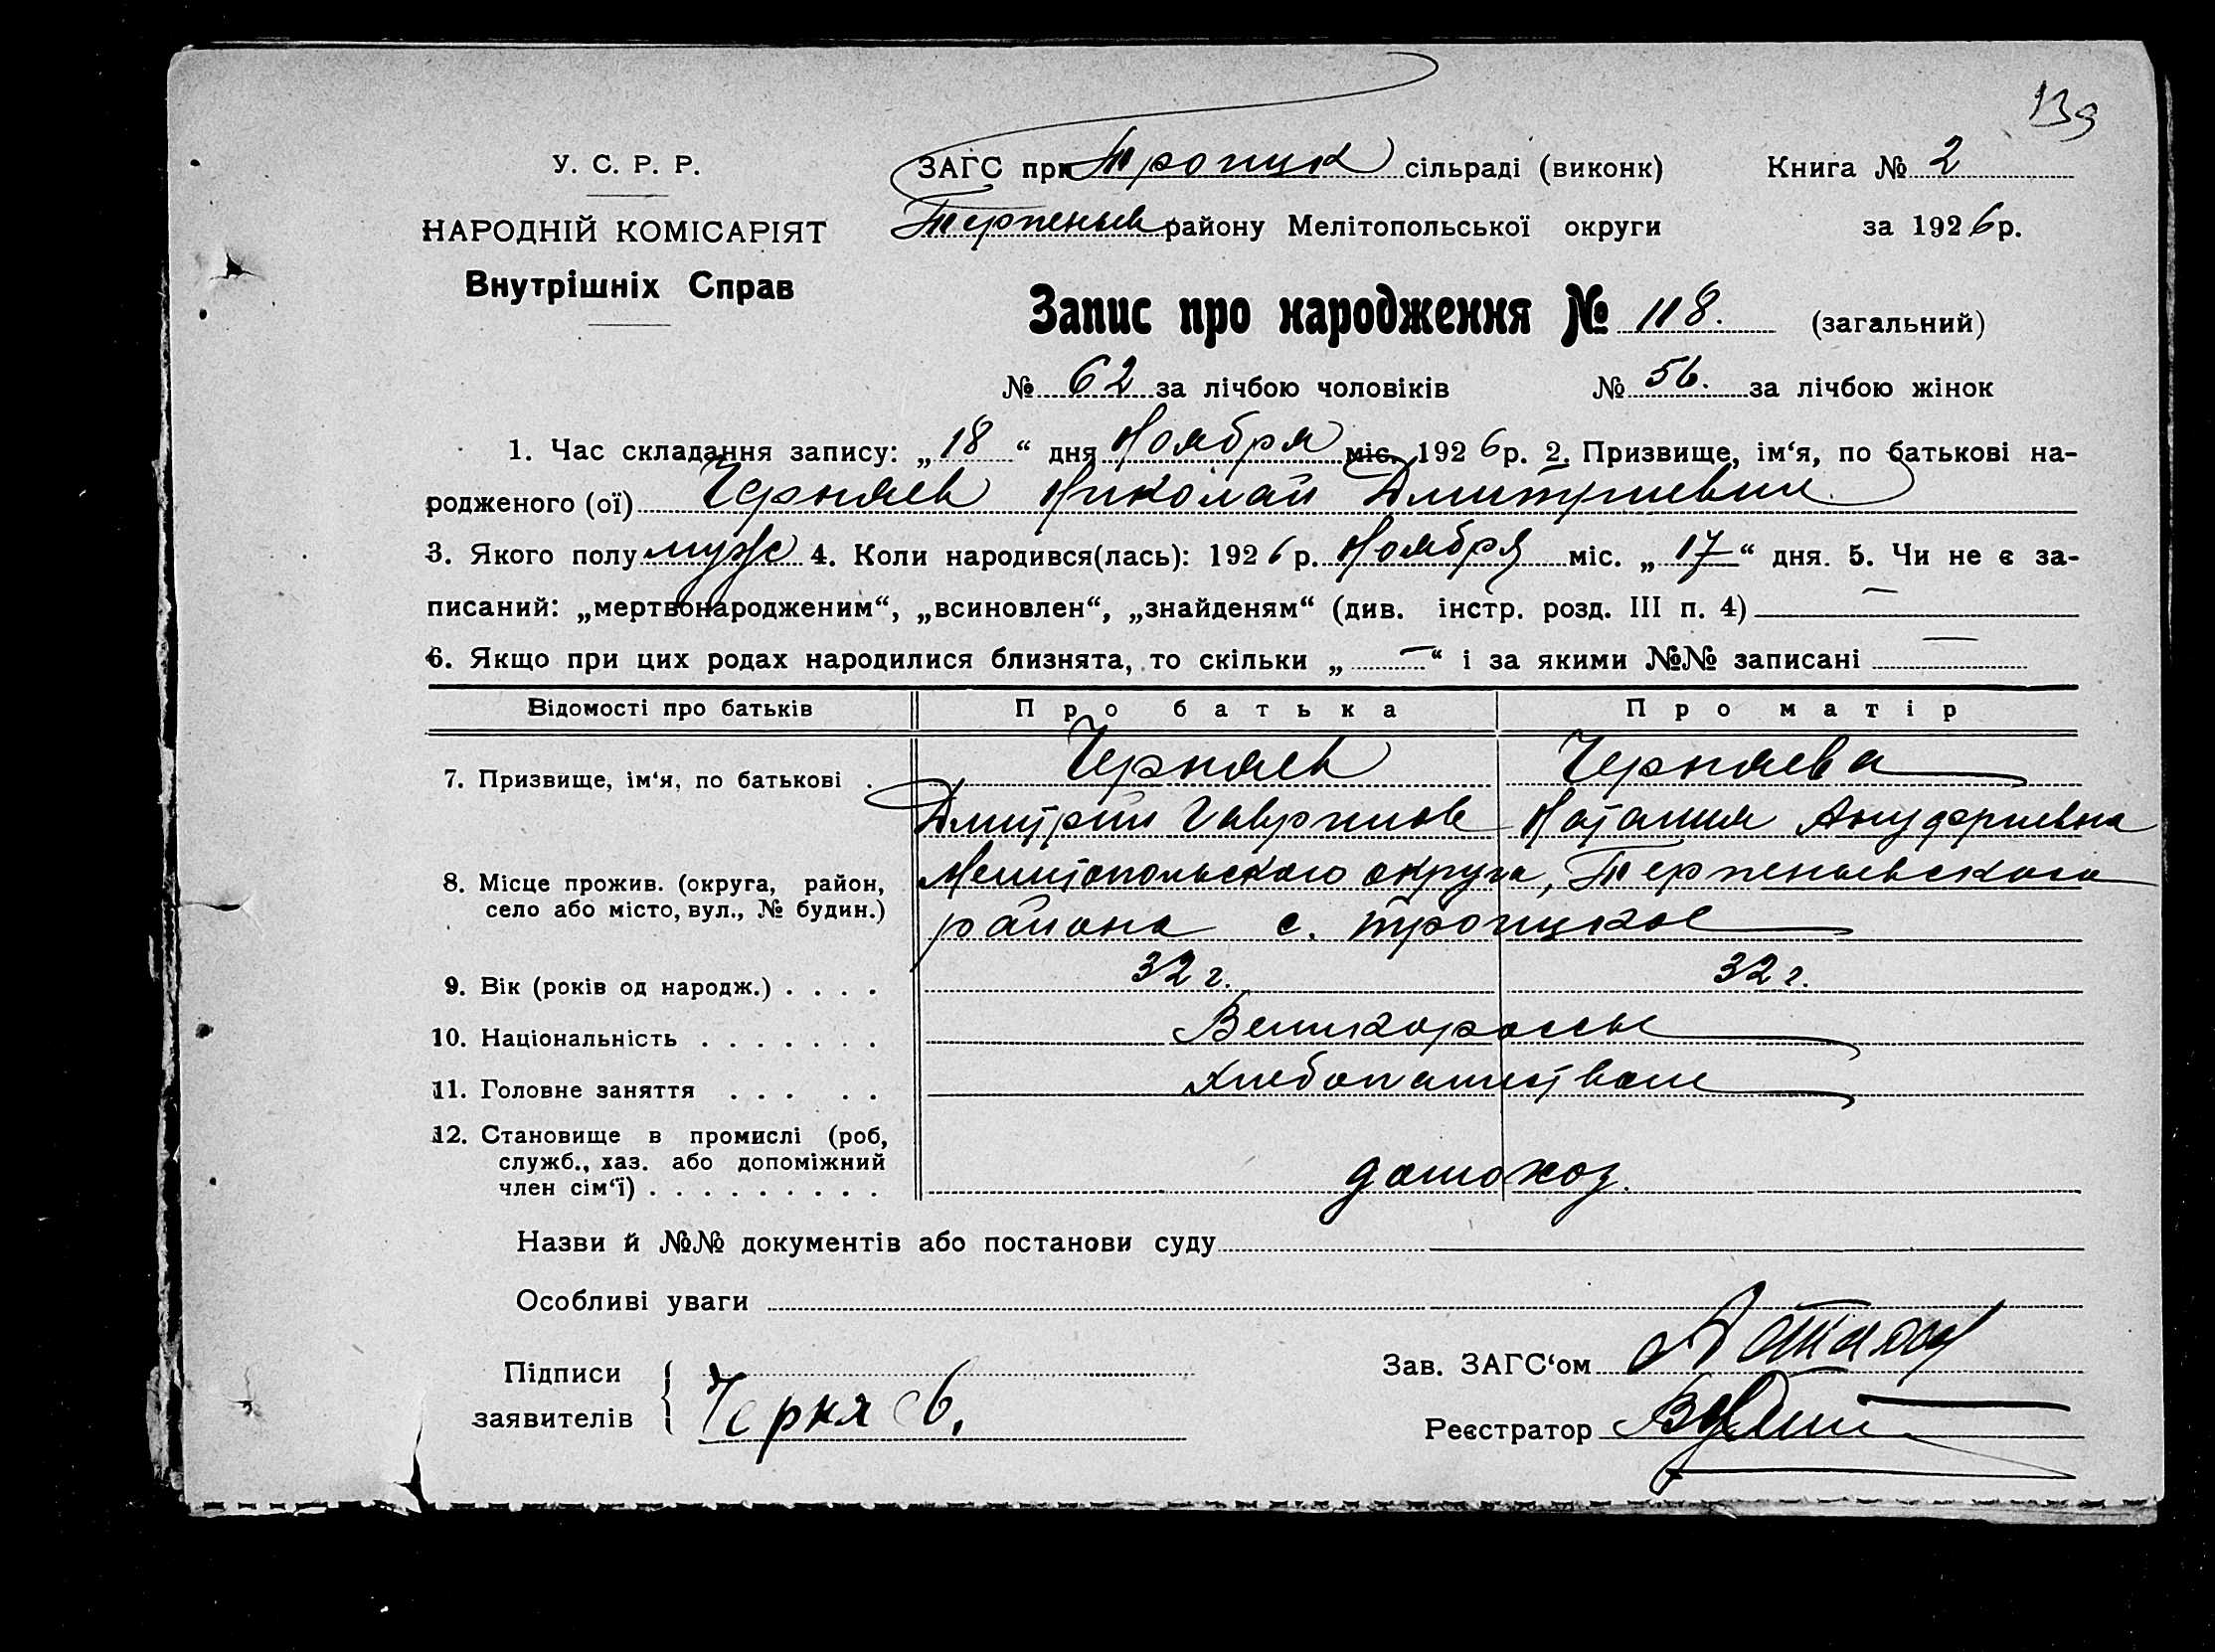 139
У. С. Р. Р.
ЗАГС при Троицк сільраді (виконк) Книга № 2
НАРОДНІЙ КОМІСАРІЯТ
Терпеньев району Мелітопольської округи за 1926 р.
Внутрішніх Справ
Запис про народження № 118. (загальний)
№ 62 за лічбою чоловіків № 56. за лічбою жінок
1. Час складання запису: „18“ дня Ноября міс. 1926 р. 2. Призвище, ім‘я, по батькові на-
родженого (ої) Черняев Николай Дмитриевич
3. Якого полу муж 4. Коли народився(лась): 1926 р. Ноября міс. „17“ дня. 5. Чи не є за-
писаний: „мертвонародженим“, „всиновлен“, „знайденям“ (див. інстр. розд. III п. 4) —
6. Якщо при цих родах народилися близнята, то скільки „—“ і за якими №№ записані —
Відомості про батьків Про батька Про матір
7. Призвище, ім‘я, по батькові . Черняев Черняева
Дмитрий Гаврилов Наталия Ануфриевна
8. Місце прожив. (округа, район, Мелитопольского округа, Терпеньевского
село або місто, вул., № будин.) района с. Троицкое
9. Вік (років од народж.) . . . . 32 г. 32 г.
10. Національність . . . . . . . Великороссы
11. Головне заняття . . . . . Хлебопашество
12. Становище в промислі (роб,
служб., хаз. або допоміжний
член сім‘ї) . . . . . . . . . домохоз.
Назви й №№ документів або постанови суду
Особливі уваги
Підписи
Зав. ЗАГС‘ом
заявителів Черняев.
Реєстратор